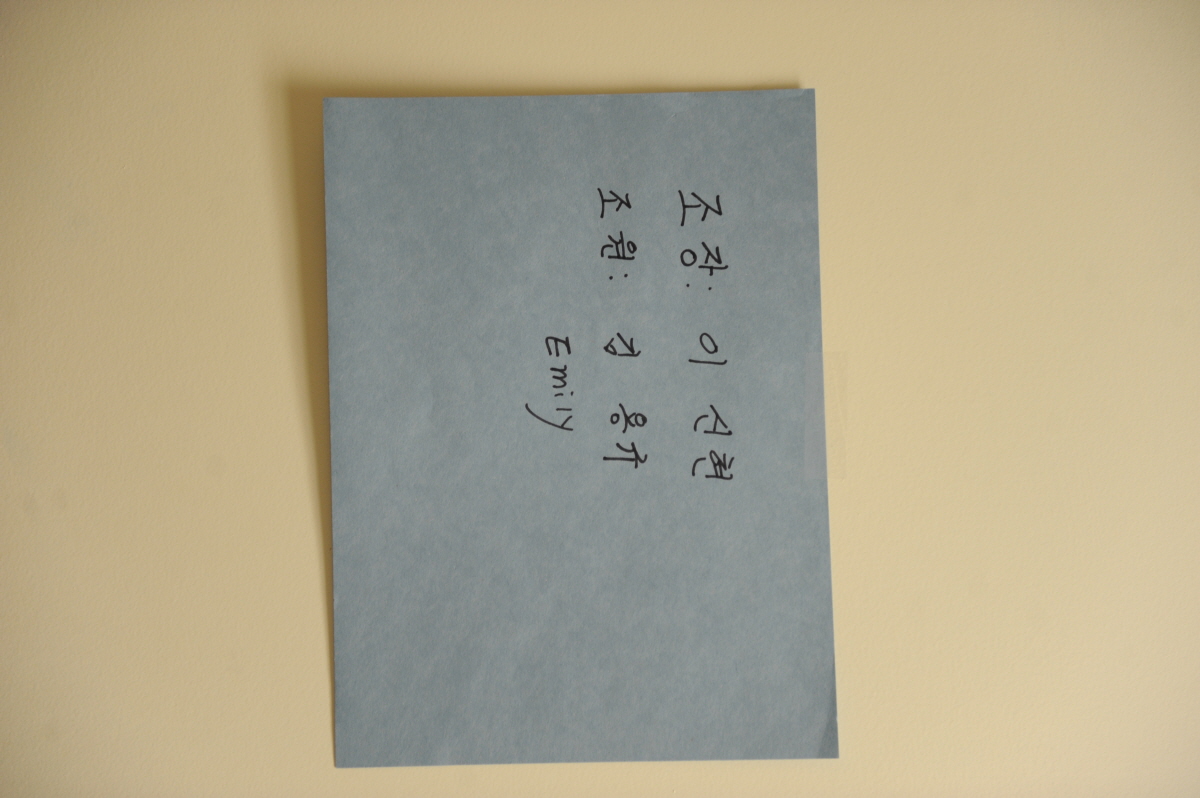 조장: 이 선현
조원: 김 용주
Emily